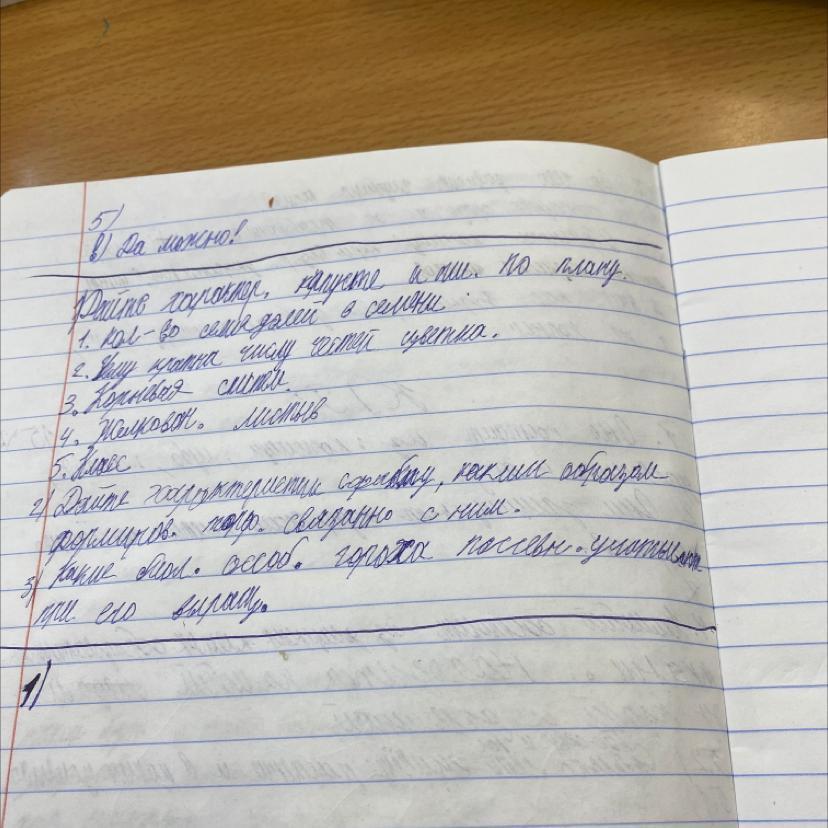 5)
в) Да можно!
1) Дайте характер. капусте и пш. по плану.
1. кол-во семядолей в семени
2. Чему кратна числу частей цветка.
3. Корневая система
4. Жилкован. листьев
5. Класс
2) Дайте характеристику, каким образом
формиров. связанно с ним.
3) Какие биол. особ. гороха поссевн. учитывают
при его выращ.
1)